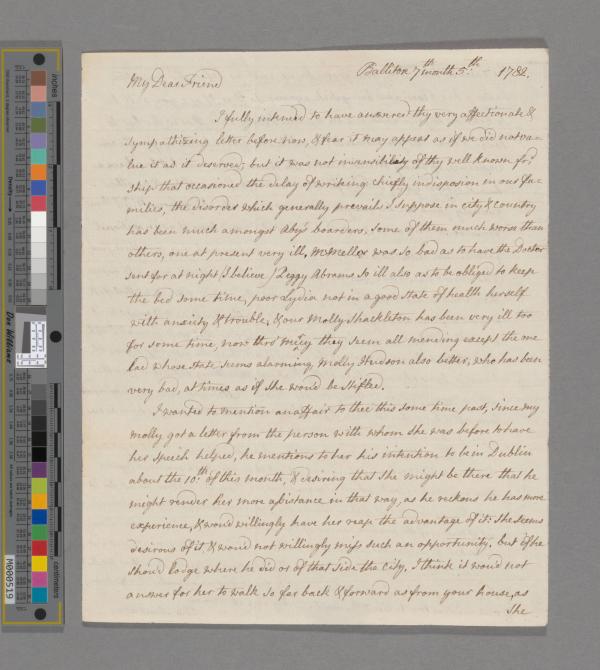 Balliton 7th month 5th: 1782.
My Dear Friend
I fully intended to have answered thy very affectionate &
sympathizing letter before now, & fear it may appear as if we did not va-
lue it as it deserved, but it was not insensibility of thy well known frd
ship that occasioned the delay of writing: chiefly indisposion in our fa-
milies, the disorder which generally prevails I suppose in city & country
has been much amongst Aby's boarders, some of them much worse than
others, one at present very ill, Mellor was so bad as to have the Doctor
sent for at night (I believe) Peggy Abrams so ill also as to be obliged to keep
the bed some time, poor Lydia not in a good state of health herself
with anxiety & trouble, & our Molly Shackleton has been very ill too
for some time, now thro' mercy they seem all mending except the one
lad whose state seems alarming, Molly Hudson also better, who has been
very bad, at times as if she wou'd be stifled.
I wanted to mention an affair to thee this some time past, since my
Molly got a letter from the person with whom she was before to have
her speech helped, he mentions to her his intention to be in Dublin
about the 10th of this month, & desiring that she might be there that he
might render her more assistance in that way, as he reckons he has more
experience, & wou'd willingly have her reap the advantage of it: she seems
desirous of it, & wou'd not willingly miss such an opportunity, but if he
shou'd lodge where he did or of that side the city, I think it wou'd not
answer for her to walk so far back & forward as from your house, as
she
inches
centimeters
Density
Don Williams
M000519